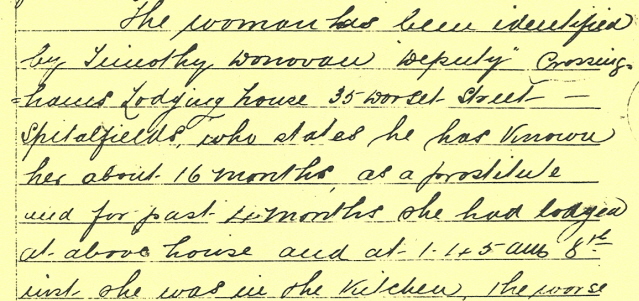 The woman has been identified
by Timothy Donovan "Deputy" Crossing-
=hams Lodging house 35 Dorset Street —
Spitalfields, who states he has known
her about 16 months, as a prostitute
and for past 4 months she had lodged
at above house and at 1.45 am 8th
inst. she was in the kitchen, the worse